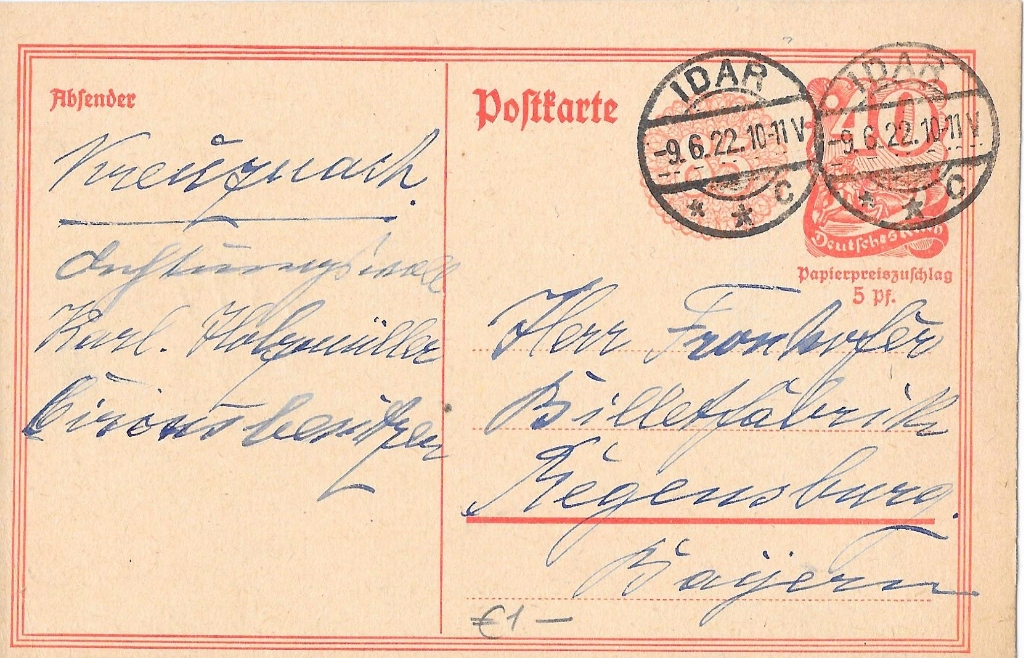 Absender
Kreuznach
Karl. Holzmüller
Circusbesitzer
Postkarte
IDAR
-9.6.22.10-11V
* * C
IDAR
-9.6.22.10-11V
* * C
40
Deutsches Reich
Papierpreiszuschlag
5 Pf.
Herr Fronhofer
Billetfabrik
Regensburg.
Bayern
€1 —